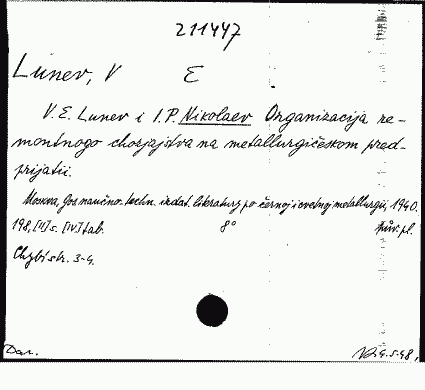 211447
Lunev, V E
V. E. Lunev i I. P. Nikolaev Organizacija re-
montnogo chozjajstva na metallurgičeskom pred-
prijatii.
Moskva, Gos naučno-techn. izdat. literatury po černoj i cvetnoj metallurgii, 1940.
198, [II] s. [IV] tab. 8° pův. pl.
Chybí str. 3-4.
Dar. 4.5.48,